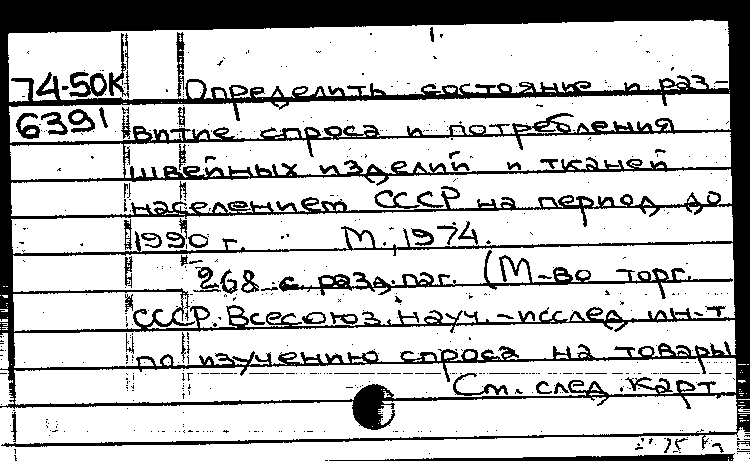 1.
74-50К Определить состояние и раз-
6391 витие спроса и потребления
швейных изделий и тканей
населением СССР на период до
1990 г. М., 1974.
268 с разд. паг. (М-во торг.
СССР. Всесоюз. науч.-исслед. ин-т
по изучению спроса на товары
См. след. карт.